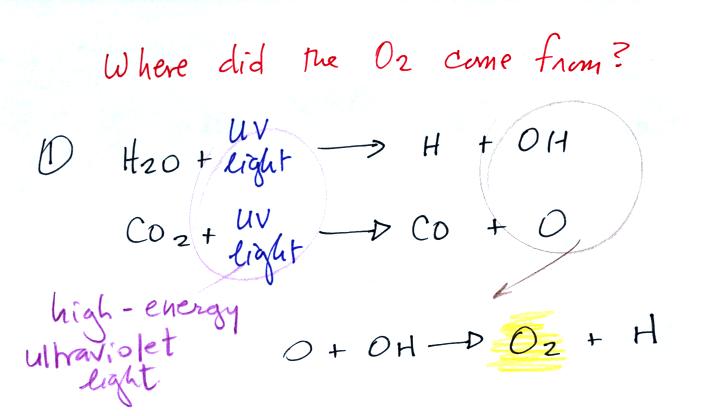 Where did the O2 come from?
① H2O + UV light → H + OH
CO2 + UV light → CO + O
high-energy
ultraviolet
light
O + OH → O2 + H